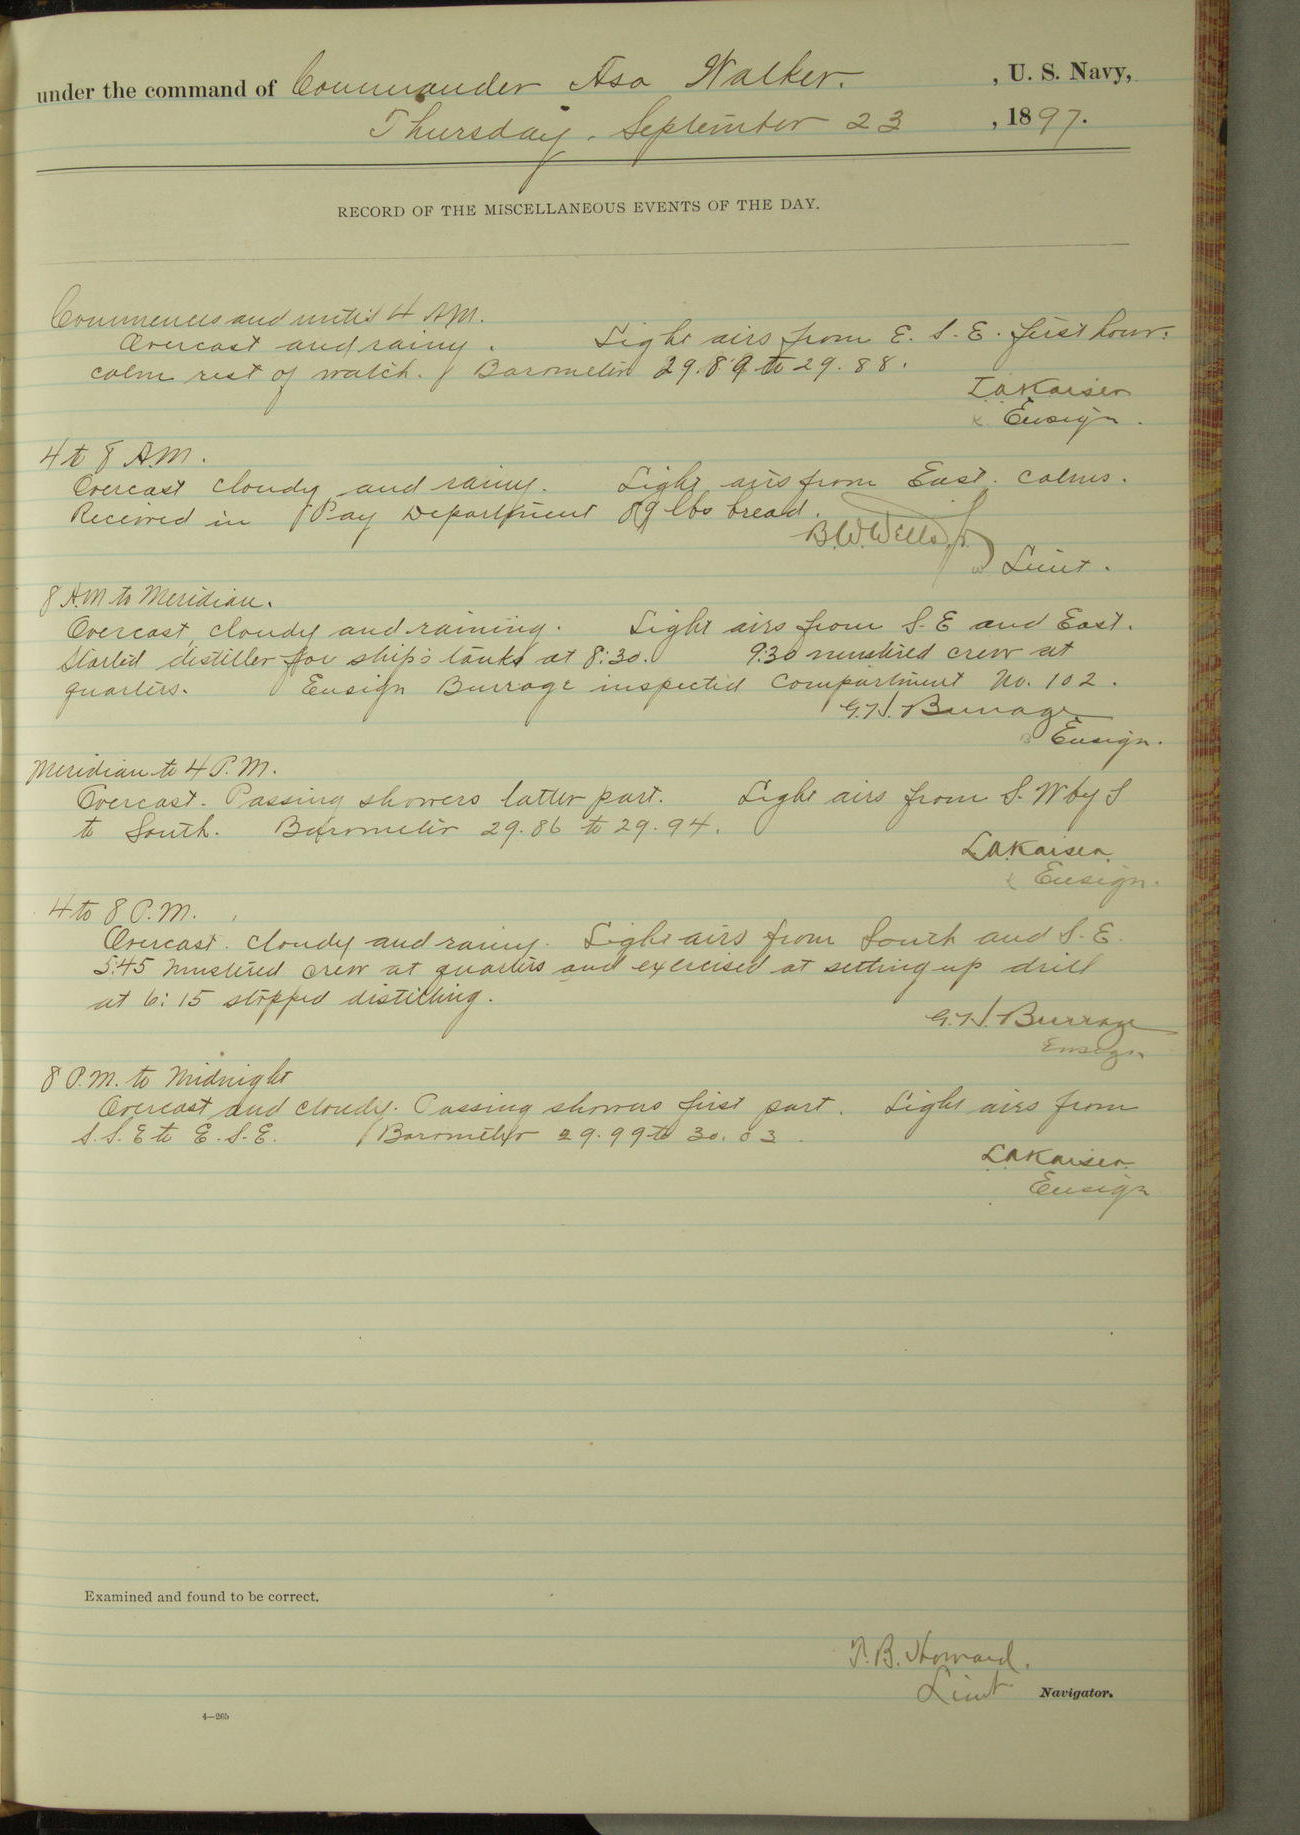 under the command of Commander Asa Walker. , U. S. Navy,
Thursday, September 23 , 1897.
RECORD OF THE MISCELLANEOUS EVENTS OF THE DAY.
Commences and until 4 A.M.
Overcast and rainy. Light airs from E. S. E. first hour.
calm rest of watch. Barometer 29.89 to 29.88.
L.A. Kaiser
Ensign.
4 to 8 A.M.
Overcast cloudy and rainy. Light airs from East. calms.
Received in Pay Department 89 lbs bread.
B.W. Wells, Jr.
Lieut.
8 A.M to Meridian.
Overcast, cloudy and raining. Light airs from S. E and East.
Started distiller for ship's tanks at 8:30. 9:30 mustered crew at
quarters. Ensign Burrage inspected Compartment No. 102.
G.H. Burrage
Ensign.
Meridian to 4 P.M.
Overcast. Passing showers latter part. Light airs from S. W by S
to South. Barometer 29.86 to 29.94.
L.A. Kaiser.
Ensign.
4 to 8 P.M.
Overcast. cloudy and rainy. Light airs from South and S. E.
5:45 mustered crew at quarters and exercised at setting up drill
at 6:15 stopped distilling.
G.H. Burrage
Ensign
8 P.M. to Midnight
Overcast and cloudy. Passing showers first part. Light airs from
S. S. E to E. S. E. Barometer 29.99 to 30.03.
L.A. Kaiser.
Ensign
Examined and found to be correct.
T. B. Howard.
Lieut Navigator.
4—265